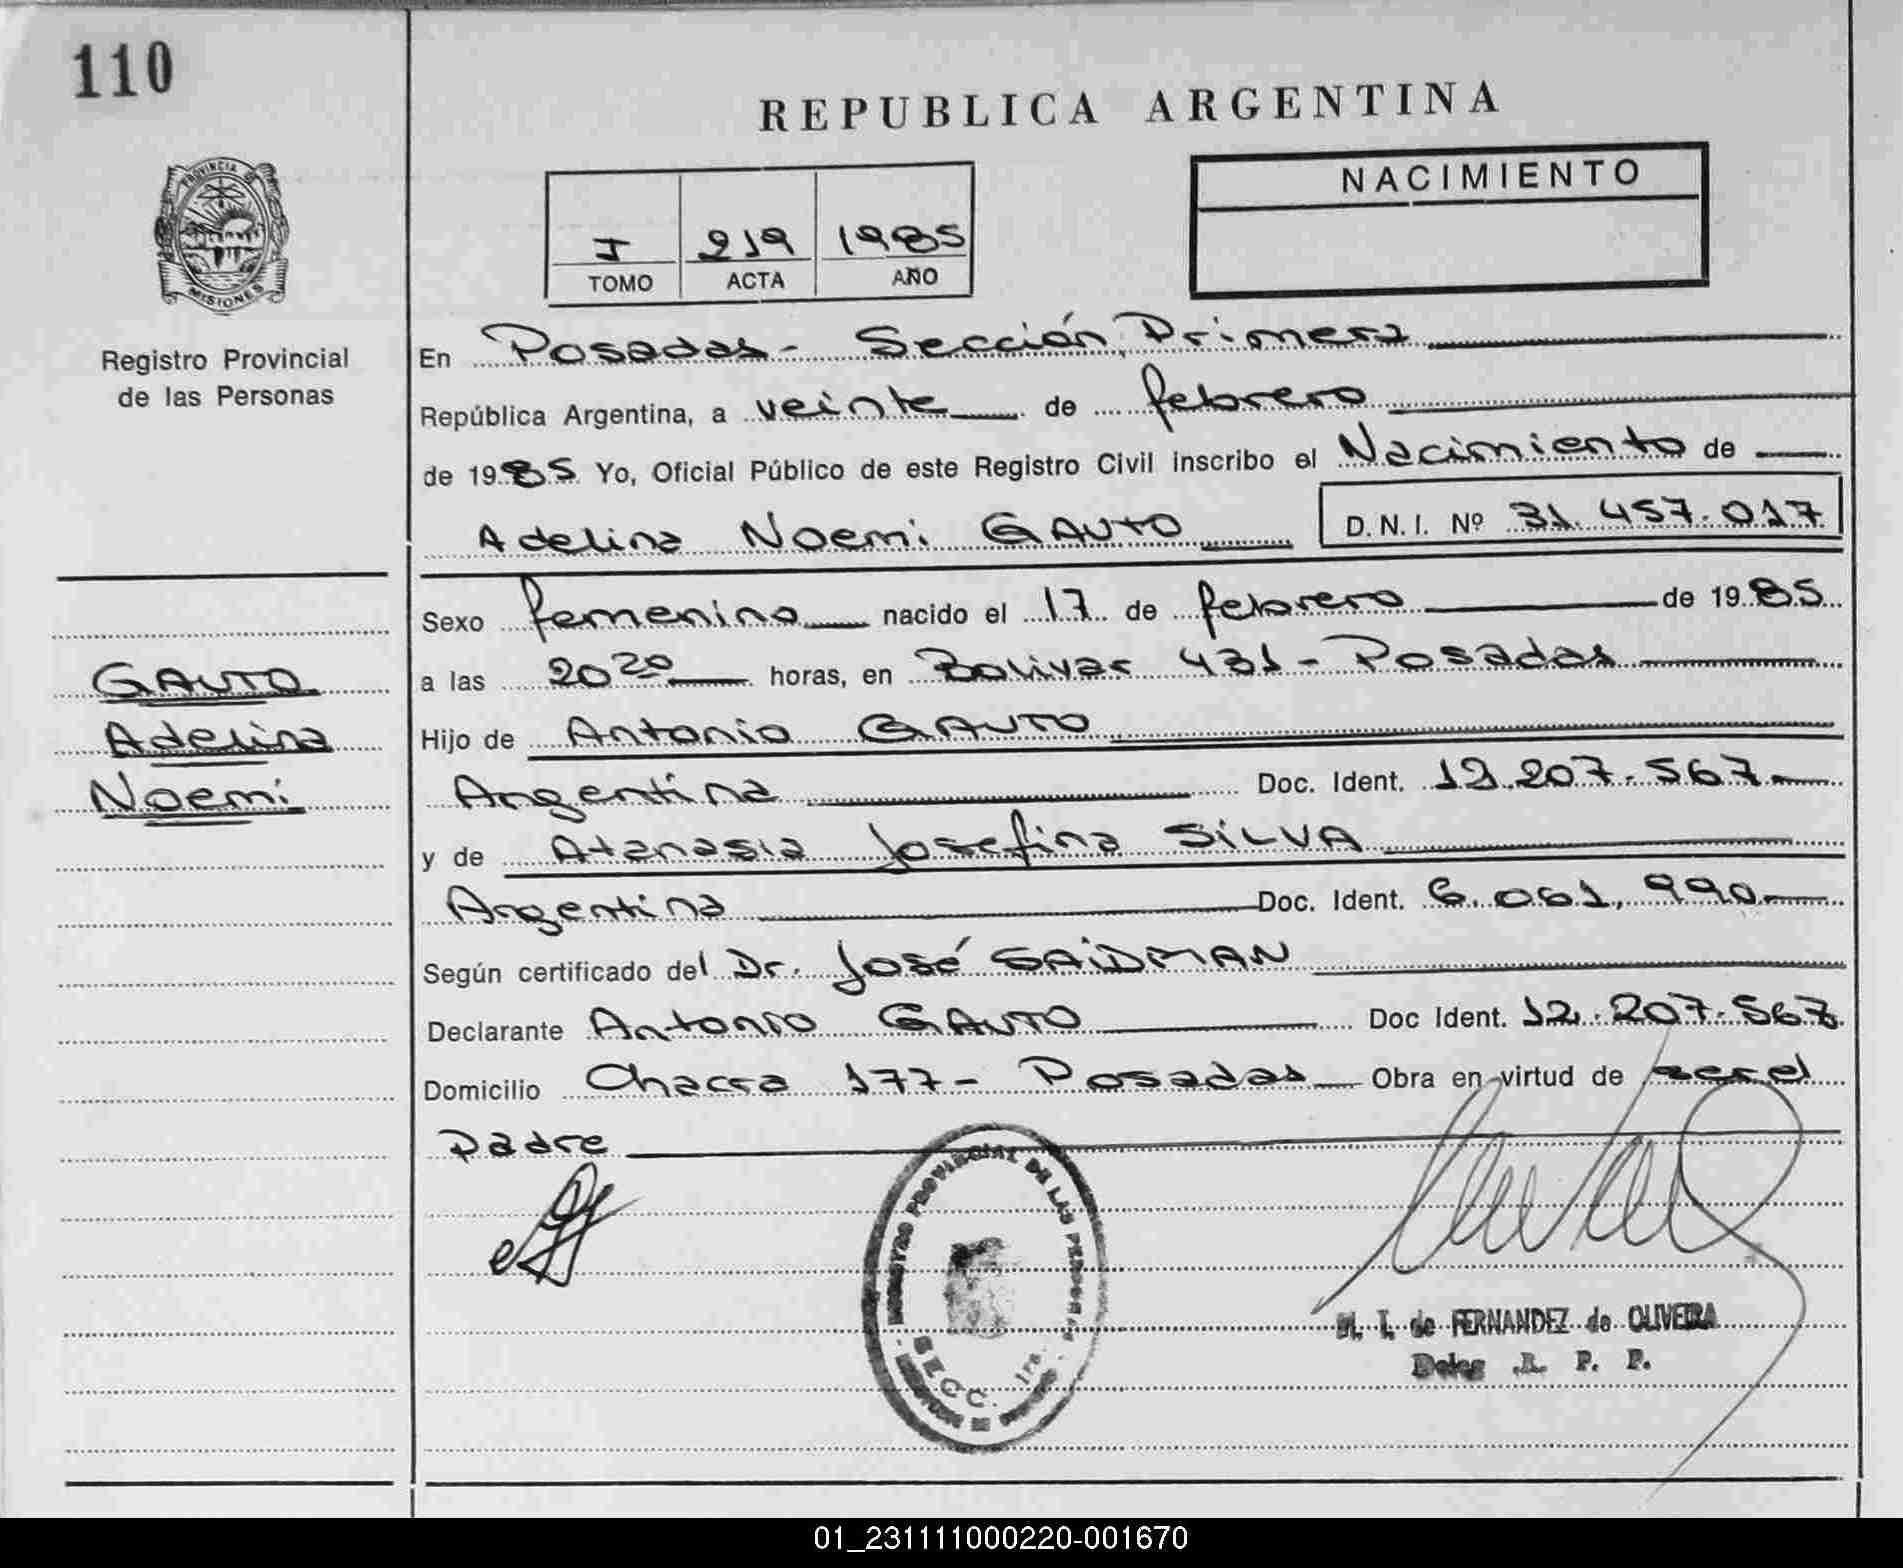 110
REPUBLICA ARGENTINA
PROVINCIA DE
MISIONES
Registro Provincial
de las Personas
I 219 1985
TOMO ACTA AÑO
NACIMIENTO
En Posadas - Sección Primera
República Argentina, a veinte de febrero
de 1985 Yo, Oficial Público de este Registro Civil inscribo el Nacimiento de
Adelina Noemi GAUTO D.N.I. Nº 31.457.017
Sexo femenino nacido el 17 de febrero de 1985
GAUTO
Adelina
Noemi
a las 20 20 horas, en Bolivar 431 - Posadas
Hijo de Antonio GAUTO
Argentina Doc. Ident. 12.207.567
y de Atanasia Josefina SILVA
Argentina Doc. Ident. 6.061.990
Según certificado del Dr. José SAIDMAN
Declarante Antonio GAUTO Doc Ident. 12.207.567
Domicilio Chacra 177 - Posadas Obra en virtud de ser el
Padre
REGISTRO PROVINCIAL DE LAS PERSONAS
SECC. 1ra.
M. I. de FERNANDEZ de OLIVEIRA
Deleg .R. P. P.
01_231111000220-001670